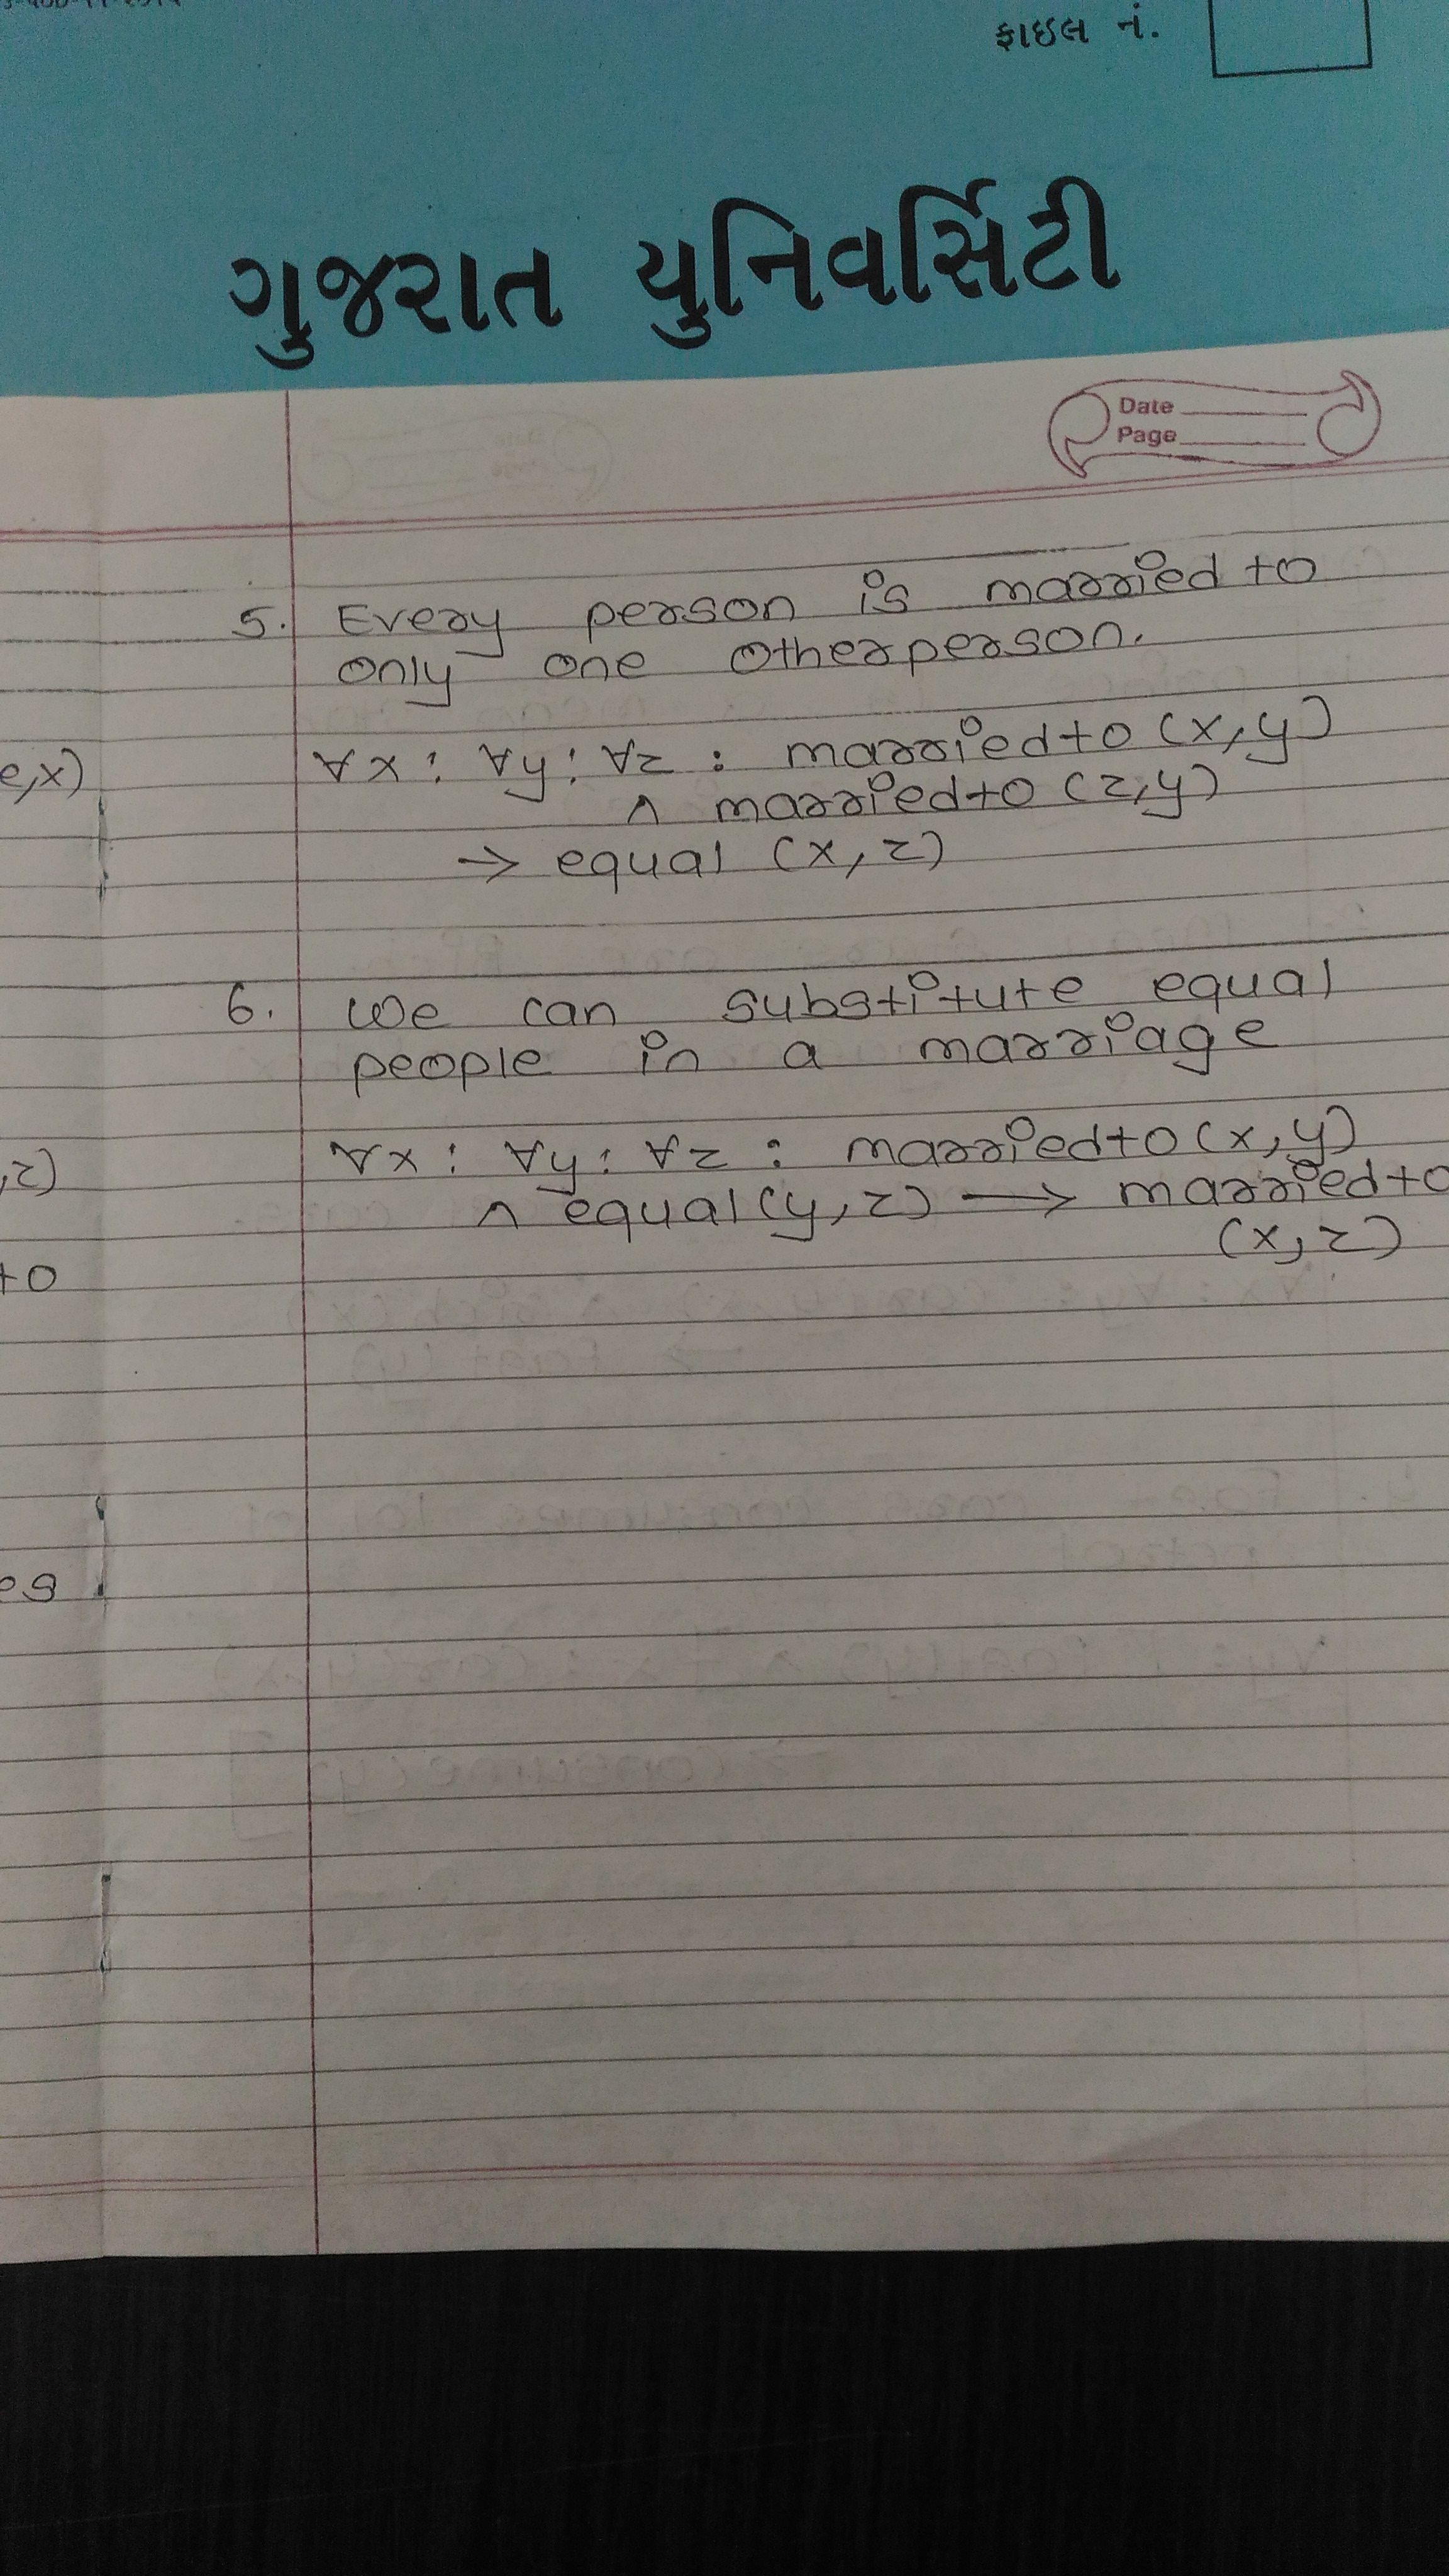 ફાઇલ નં.
ગુજરાત યુનિવર્સિટી
Date
Page
5. Every person is married to
only one otherperson.
∀x : ∀y : ∀z : marriedto(x,y)
∧ marriedto(z,y)
→ equal(x,z)
6. We can substitute equal
people in a marriage
∀x : ∀y : ∀z : marriedto(x,y)
∧ equal(y,z) → marriedto
(x,z)
e,x)
,z)
to
es